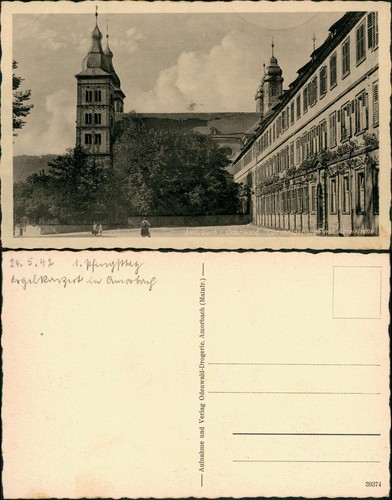 Amorbach i. Odenwald
24. 5. 42 1. Pfingsttag
Orgelkonzert in Amorbach
Aufnahme und Verlag Odenwald-Drogerie, Amorbach (Mainfr.)
39374